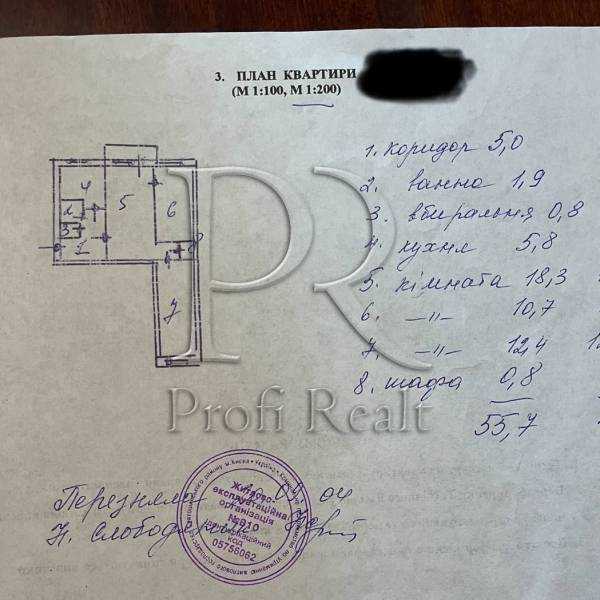 3. ПЛАН КВАРТИРИ
(М 1:100, М 1:200)
1. коридор 5,0
2. ванна 1,9
3. вбиральня 0,8
4. кухня 5,8
5. кімната 18,3
6. —„— 10,7
7. —„— 12,4
8. шафа 0,8
55,7
4
5
6
2
3
1
8
7
Profi Realt
Житлово-
експлуатаційна
організація
№910
Ідентифікаційний
код
05756062